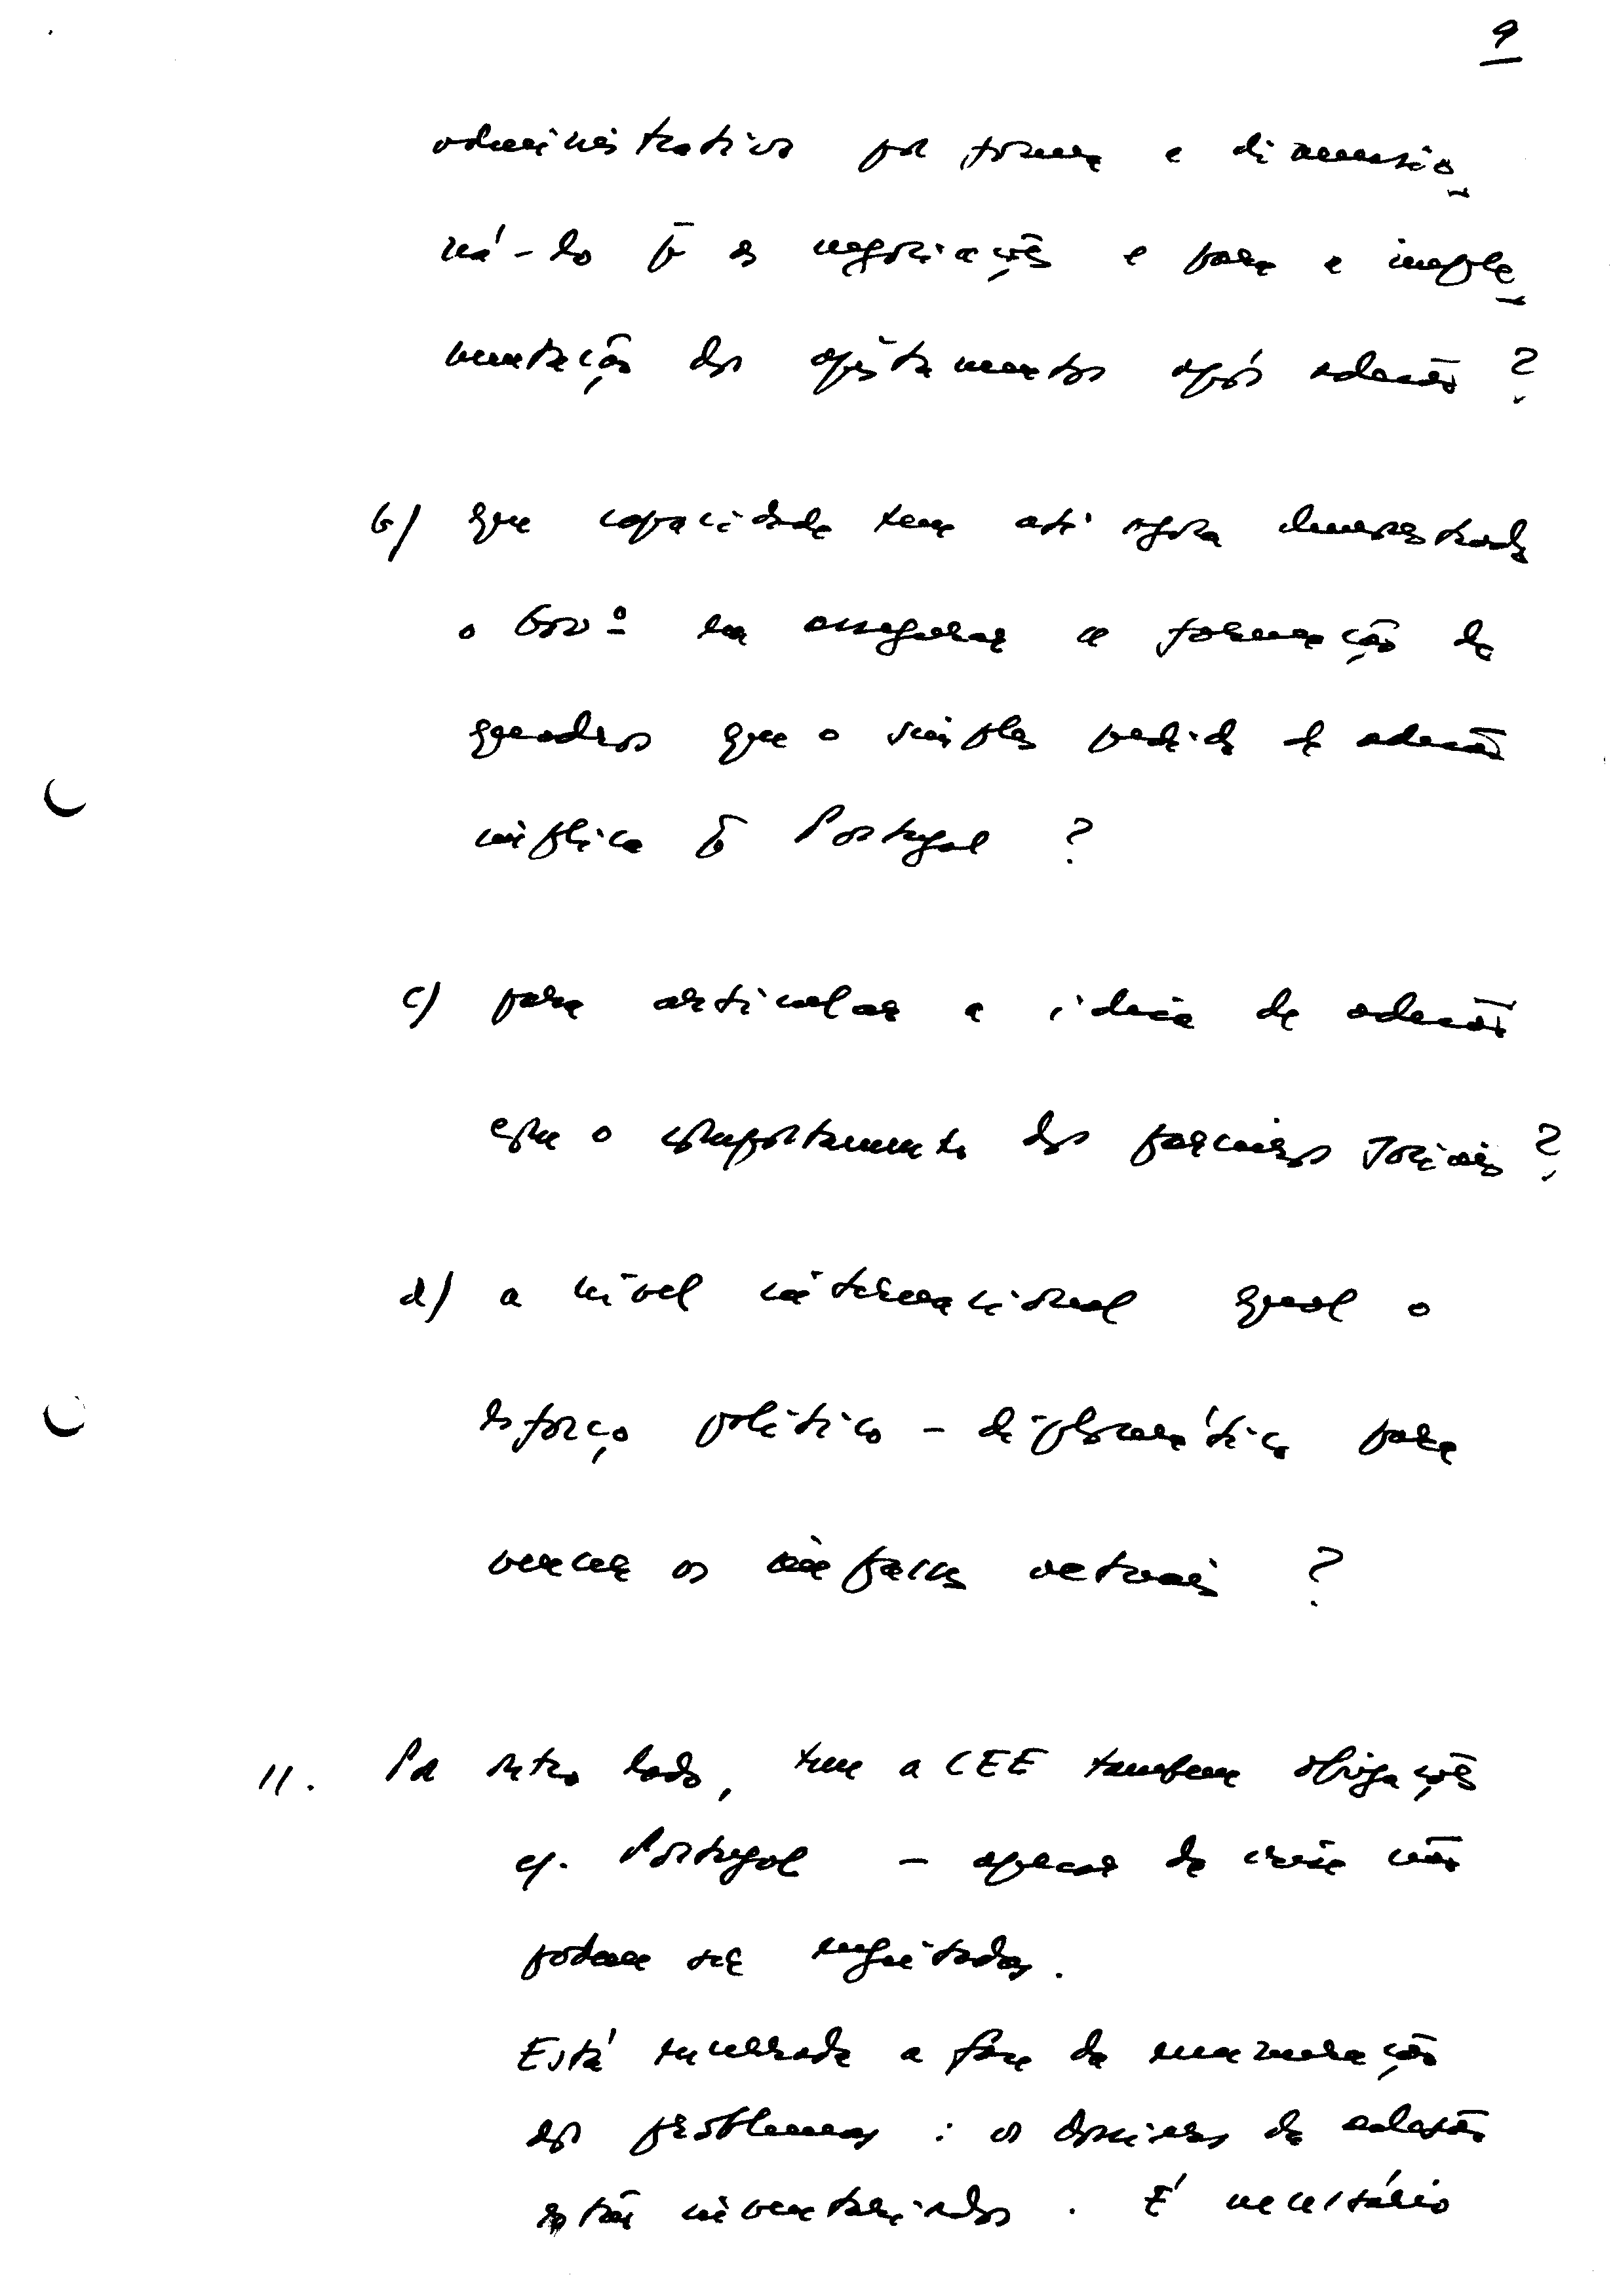 9
administrativo por forma a dimensio
ná-lo p̄ as negociações e para a imple
mentação dos ajustamentos após adesão?
b) que capacidade tem até agora demonstrado
o Govº em assegurar a formação de
quadros que o simples pedido de adesão
implica p̄ Portugal?
c) para articular a ideia de adesão
com o comportamento dos parceiros sociais?
d) a nível internacional qual o
esforço político-diplomático para
vencer os impasses actuais?
11. Por outro lado, tem a CEE também obrigações
cf. Portugal – apesar da crise não
podem ser enjeitadas.
Está encerrada a fase da enumeração
dos problemas: os dossiers da adesão
estão inventariados. É necessário